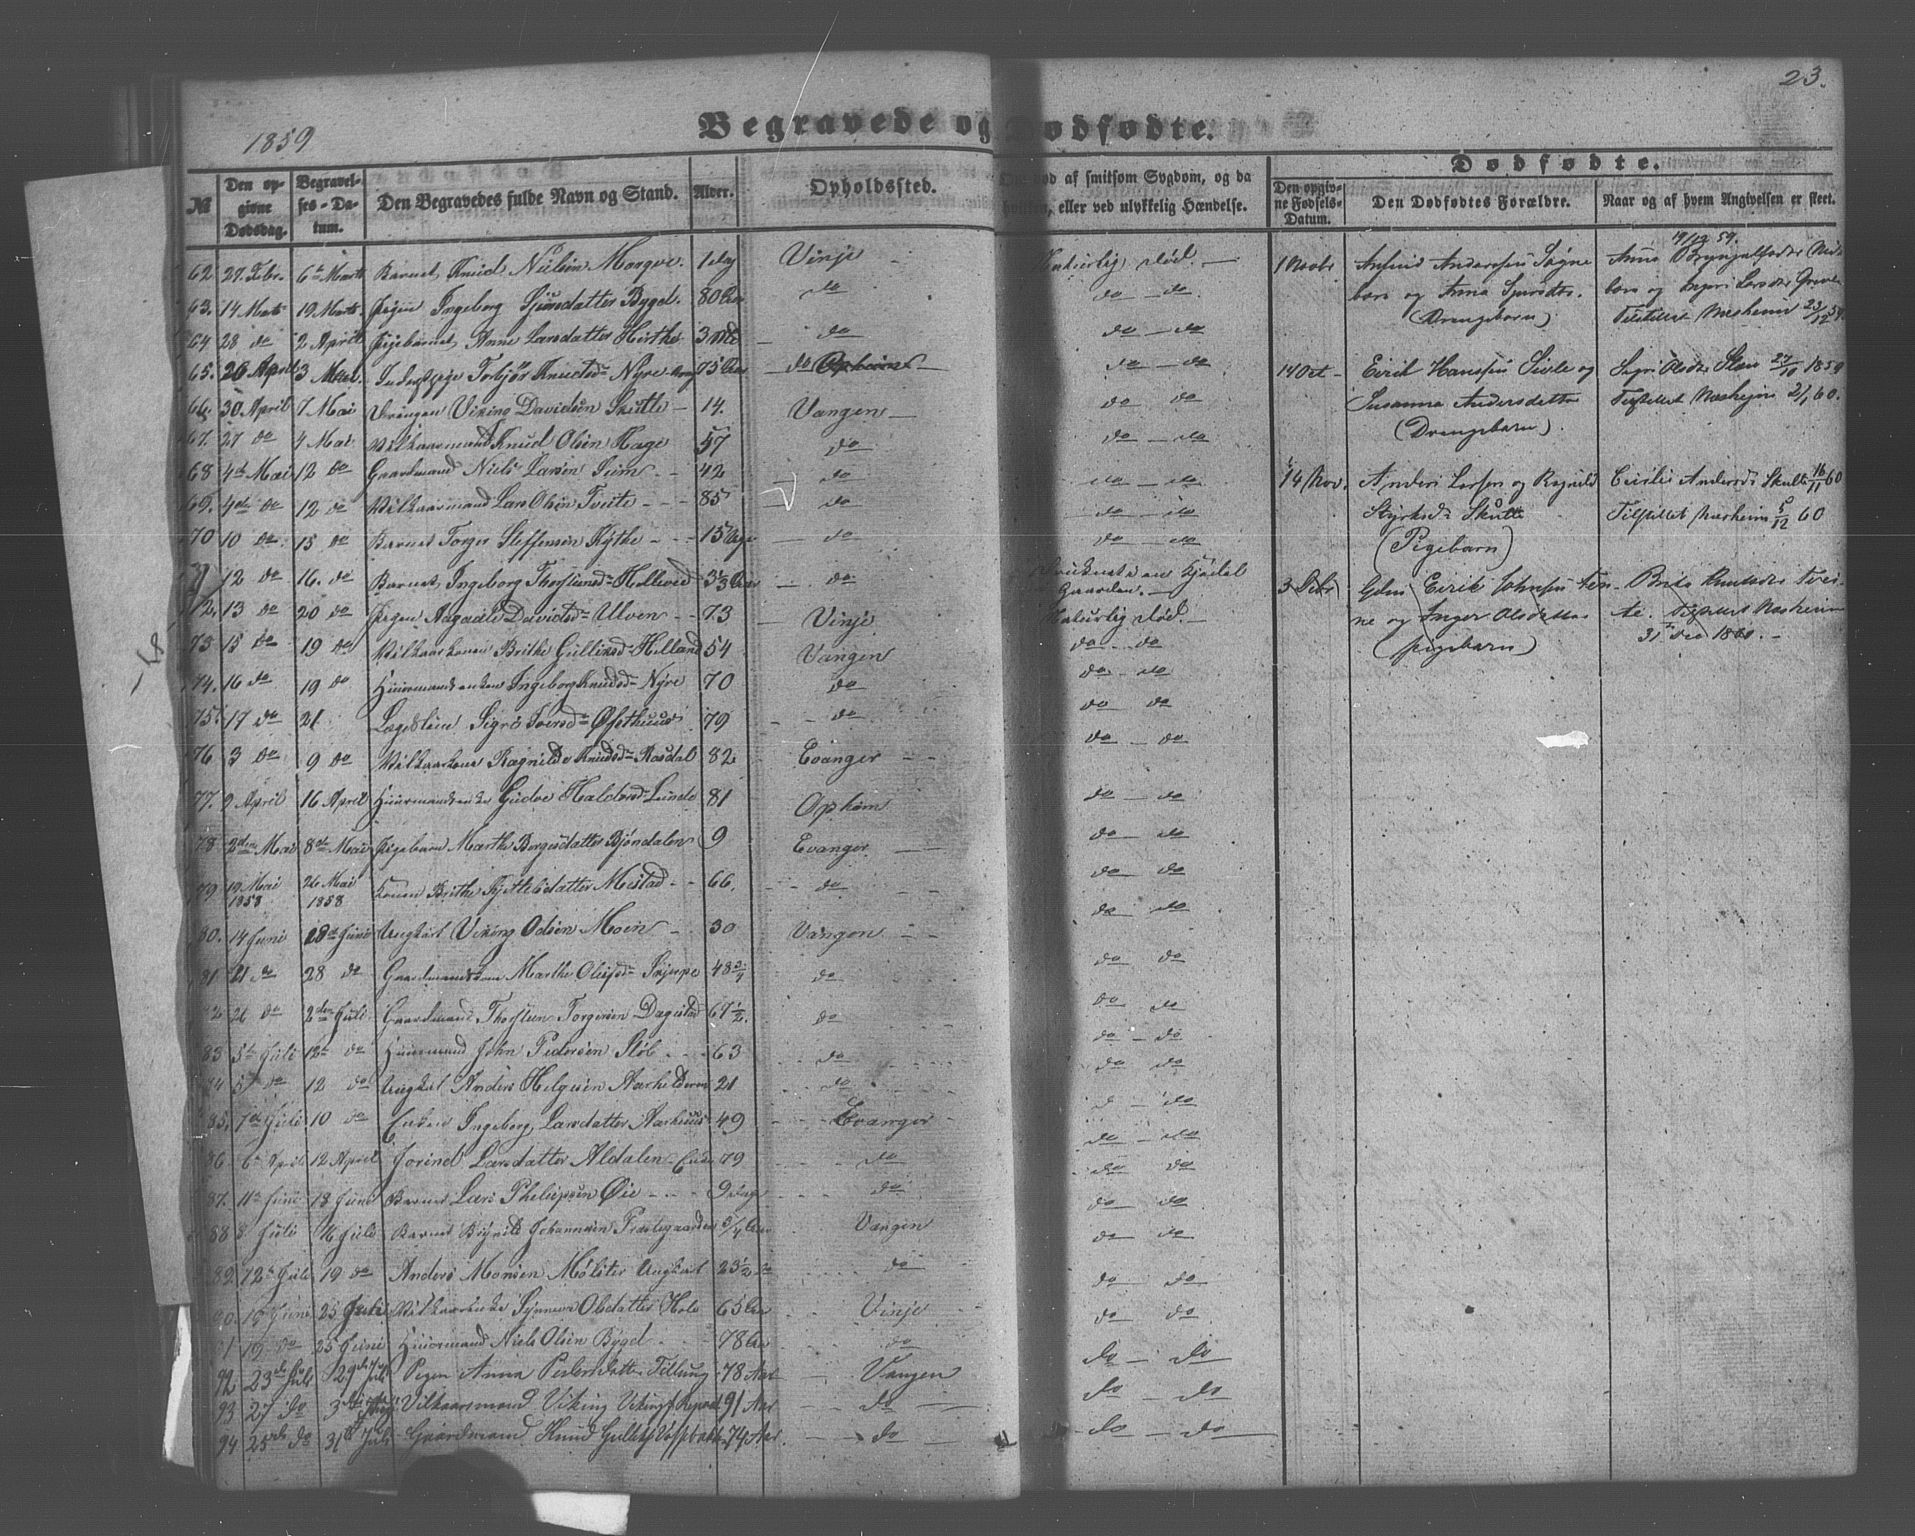 23.
1859
Begravede og Dødfødte.
Dødfødte.
No
Den opgivne Dødsdag.
Begravelses-Datum.
Den Begravedes fulde Navn og Stand.
Alder.
Opholdssted.
død af smitsom Sygdom, og da
hvilken, eller ved ulykkelig Hændelse.
Den opgivne Fødsels-Datum.
Den Dødfødtes Forældre.
Naar og af hvem Angivelsen er skeet.
62. 27. Febr. 6te Marts Barnet Knud Nielsen Morgve. 1 dag Vinje Naturlig død.
63. 14 Marts 19 Marts Pigen Ingeborg Sjursdatter Bygd. 80 Aar do do do
64 28 do 2 April Pigebarnet Anne Larsdatter Hirthe 3 Mdr do do do
65. 26 April 3 Mai Torbjør Knutsd: Nyre 75 Aar do do do
66. 30. April 7 Mai Drengen Viking Davidsen Skutle 14. Vangen do do
67. 27 do 4 Mai Vilkaarmand Knud Olsen Hage 57 do do do
68 4de Mai 12 do Gaardmand Niels Larsen Seim 42 do do do
69. 4de do 12 do Vilkaarmand Lars Olsen Tveite 85 do do do
70 10 do 15 do Barnet Torger Steffensen Kythe 15 do do do
71 12 do 16. do Barnet Ingeborg Thorsteinsd: Hellevid 3 1/3 Aar do Gaarden.
72. 13 do 20 do Pigen Aagaate Davidsd: Ulven 73 Vinje Naturlig død.
73 15 do 19 do Vilkaarkonen Brithe Gulliksd: Helland 54 Vangen do do
74. 16 do 19 do Huusmandsenken Ingeborg Knudsd: Nyre 70 do do do
75. 17 do 21 Lægdslem Sigri Iversd: Øfsthuus 79 do do do
76 3 do 9 do Vilkaarkone Ragnilde Knudsd: Rasdal 82 Evanger do do
77. 9 April 16 April Huusmandsenke Gudve Haldorsd: Lunde 81 Opheim do do
78. 2den Mai 8de Mai Pigebarn Marthe Borgesdatter Bjøndalen 9 Evanger do do
79 19 Mai 1858 26 Mai 1858 Konen Brithe Kjittelsdatter Mestad 66. do do do
80. 14 Juni 18de Juni Ungkarl Viking Odsen Moen 30 Vangen do do
81 21 do 28 do Gaardmandskone Marthe Olufsd: Skjerpe 48 3/4 do do do
82 26 do 2den Juli Gaardmand Thorstein Torgersen Dagestad 67 1/2 do do do
83 5te Juli 12te do Huusmand John Pedersen Støb 63 do do do
84 5 do 12 do Ungkarl Anders Helgesen Aarhelderen 21 do do do
85. 7de Juli 10 do Enken Ingeborg Larsdatter Aarhuus 49 Evanger do
86 6te April 12 April Jorend Larsdatter Aldalen Enke 79 do do do
87. 11te Juni 18 Juni Barnet Lars Philipsen Øie 9 Dage do do do
88 8 Juli 16 Juli Barnet Johannesen Præstegaarden 3/4 Aar Vangen do do
89. 12te Juli 19 do Anders Monsen Mølster Ungkarl 23 1/2 do do do
90. 19 Juni 25 Juli Vilkaarsenke Synneva Olsdatter Hole 65 Aar Vinje do do
91 19 do 25 Juni Huusmand Niels Olsen Bygd 78 Aar do do do
92 23de Juli 29de Juli Pigen Anna Pedersdatter Tillung 78 Aar Vangen do do
93 27 do 3die Aug: Vilkaarsmand Viking Vikings: 91 Aar do do do
94 25de do 31te Juli Gaardmand Knud 74 Aar do do do
1 Novbr Anfind Andersen Søgnebarn og Anna Sjursdtr. (Drengebarn)
19/12 59. Anna Brynjulfsdtr og Ingeri Larsdtr Tilstillet Næsheim 23/12 59.
14 Oct Eirik Hanssen Sivle og Susanna Andersdatter (Drengebarn).
Sigri Olsdtr 27/10 1859 Tilstillet Næsheim 2/1 60.
14 Nov. Anders Larsen og Ragnild Styrksd: Skutle (Pigebarn)
Cicilie Andersd: Skutle 16/11 60 Tilstillet Næsheim 5/12 60
3 Febr Gdm Eirik Johnsen og Inger Olsdatter (pigebarn)
Brita Knutsdtr Tveite. Tilstillet Næsheim 31 Dec 1860.